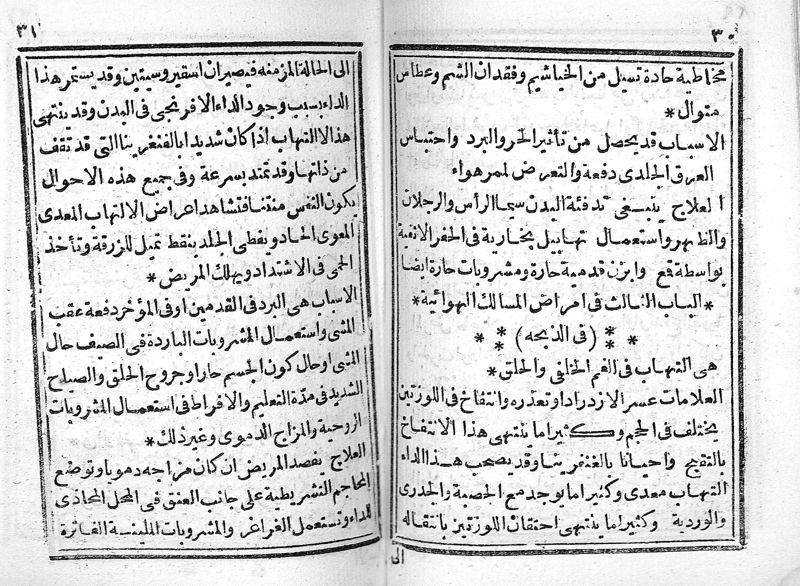 ٣٠
مخاطية حادة تسيل من الخياشيم وفقدان الشم وعطاس
متوال *
الاسباب قد يحصل من تأثير الحر والبرد واحتباس
العرق الجلدى دفعة والتعرض لممر هواء
العلاج ينبغى تدفئة البدن سيما الرأس والرجلان
والظهر واستعمال تهابيل بخارية فى الحفر الانفية
بواسطة قمع وابزن قدمية حارة ومشروبات حارة ايضا
* الباب الثالث فى امراض المسالك الهوائية *
* * * (فى الذبحه) * * *
هى التهاب فى الفم الخلفى والحلق *
العلامات عسر الازدراد او تعذره وانتفاخ فى اللوزتين
يختلف فى الحجم وكثيراما ينتهى هذا الانتفاخ
بالتقيح واحيانا بالغنغرينا وقد يصحب هذا الداء
التهاب معدى وكثيراما يوجد مع الحصبة والجدرى
والوردية وكثيراما ينتهى احتقان اللوزتين بانتقاله
الى
٣١
الى الحالة المزمنه فيصيران اسقيروسيتين وقد يستمر هذا
الداء بسبب وجود الداء الافرنجى فى البدن وقد ينتهى
هذا الالتهاب اذا كان شديدا بالغنغرينا التى قد تقف
من ذاتها وقد تمتد بسرعة وفى جميع هذه الاحوال
يكون النفس منتنا فتشاهد اعراض الالتهاب المعدى
المعوى الحاد ويغطى الجلد بنقط تميل للزرقة وتأخذ
الحمى فى الاشتداد ويهلك المريض *
الاسباب هى البرد فى القدمين او فى المؤخر دفعة عقب
المشى واستعمال المشروبات الباردة فى الصيف حال
المشى او حال كون الجسم حارا وجروح الحلق والصياح
الشديد فى مدة التعليم والافراط فى استعمال المشروبات
الروحية والمزاج الدموى وغير ذلك *
العلاج يفصد المريض ان كان مزاجه دمويا وتوضع
المحاجم التشريطية على جانب العنق فى المحل المحاذى
للداء وتستعمل الغراغر والمشروبات الملينة الفاترة